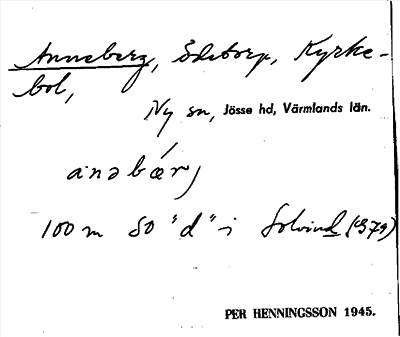 Anneberg, Ödetorp, Kyrke-
bol,
Ny sn, Jösse hd, Värmlands län.
anəbǽrj
100 m SO "d" i Solvind (G79)
PER HENNINGSSON 1945.